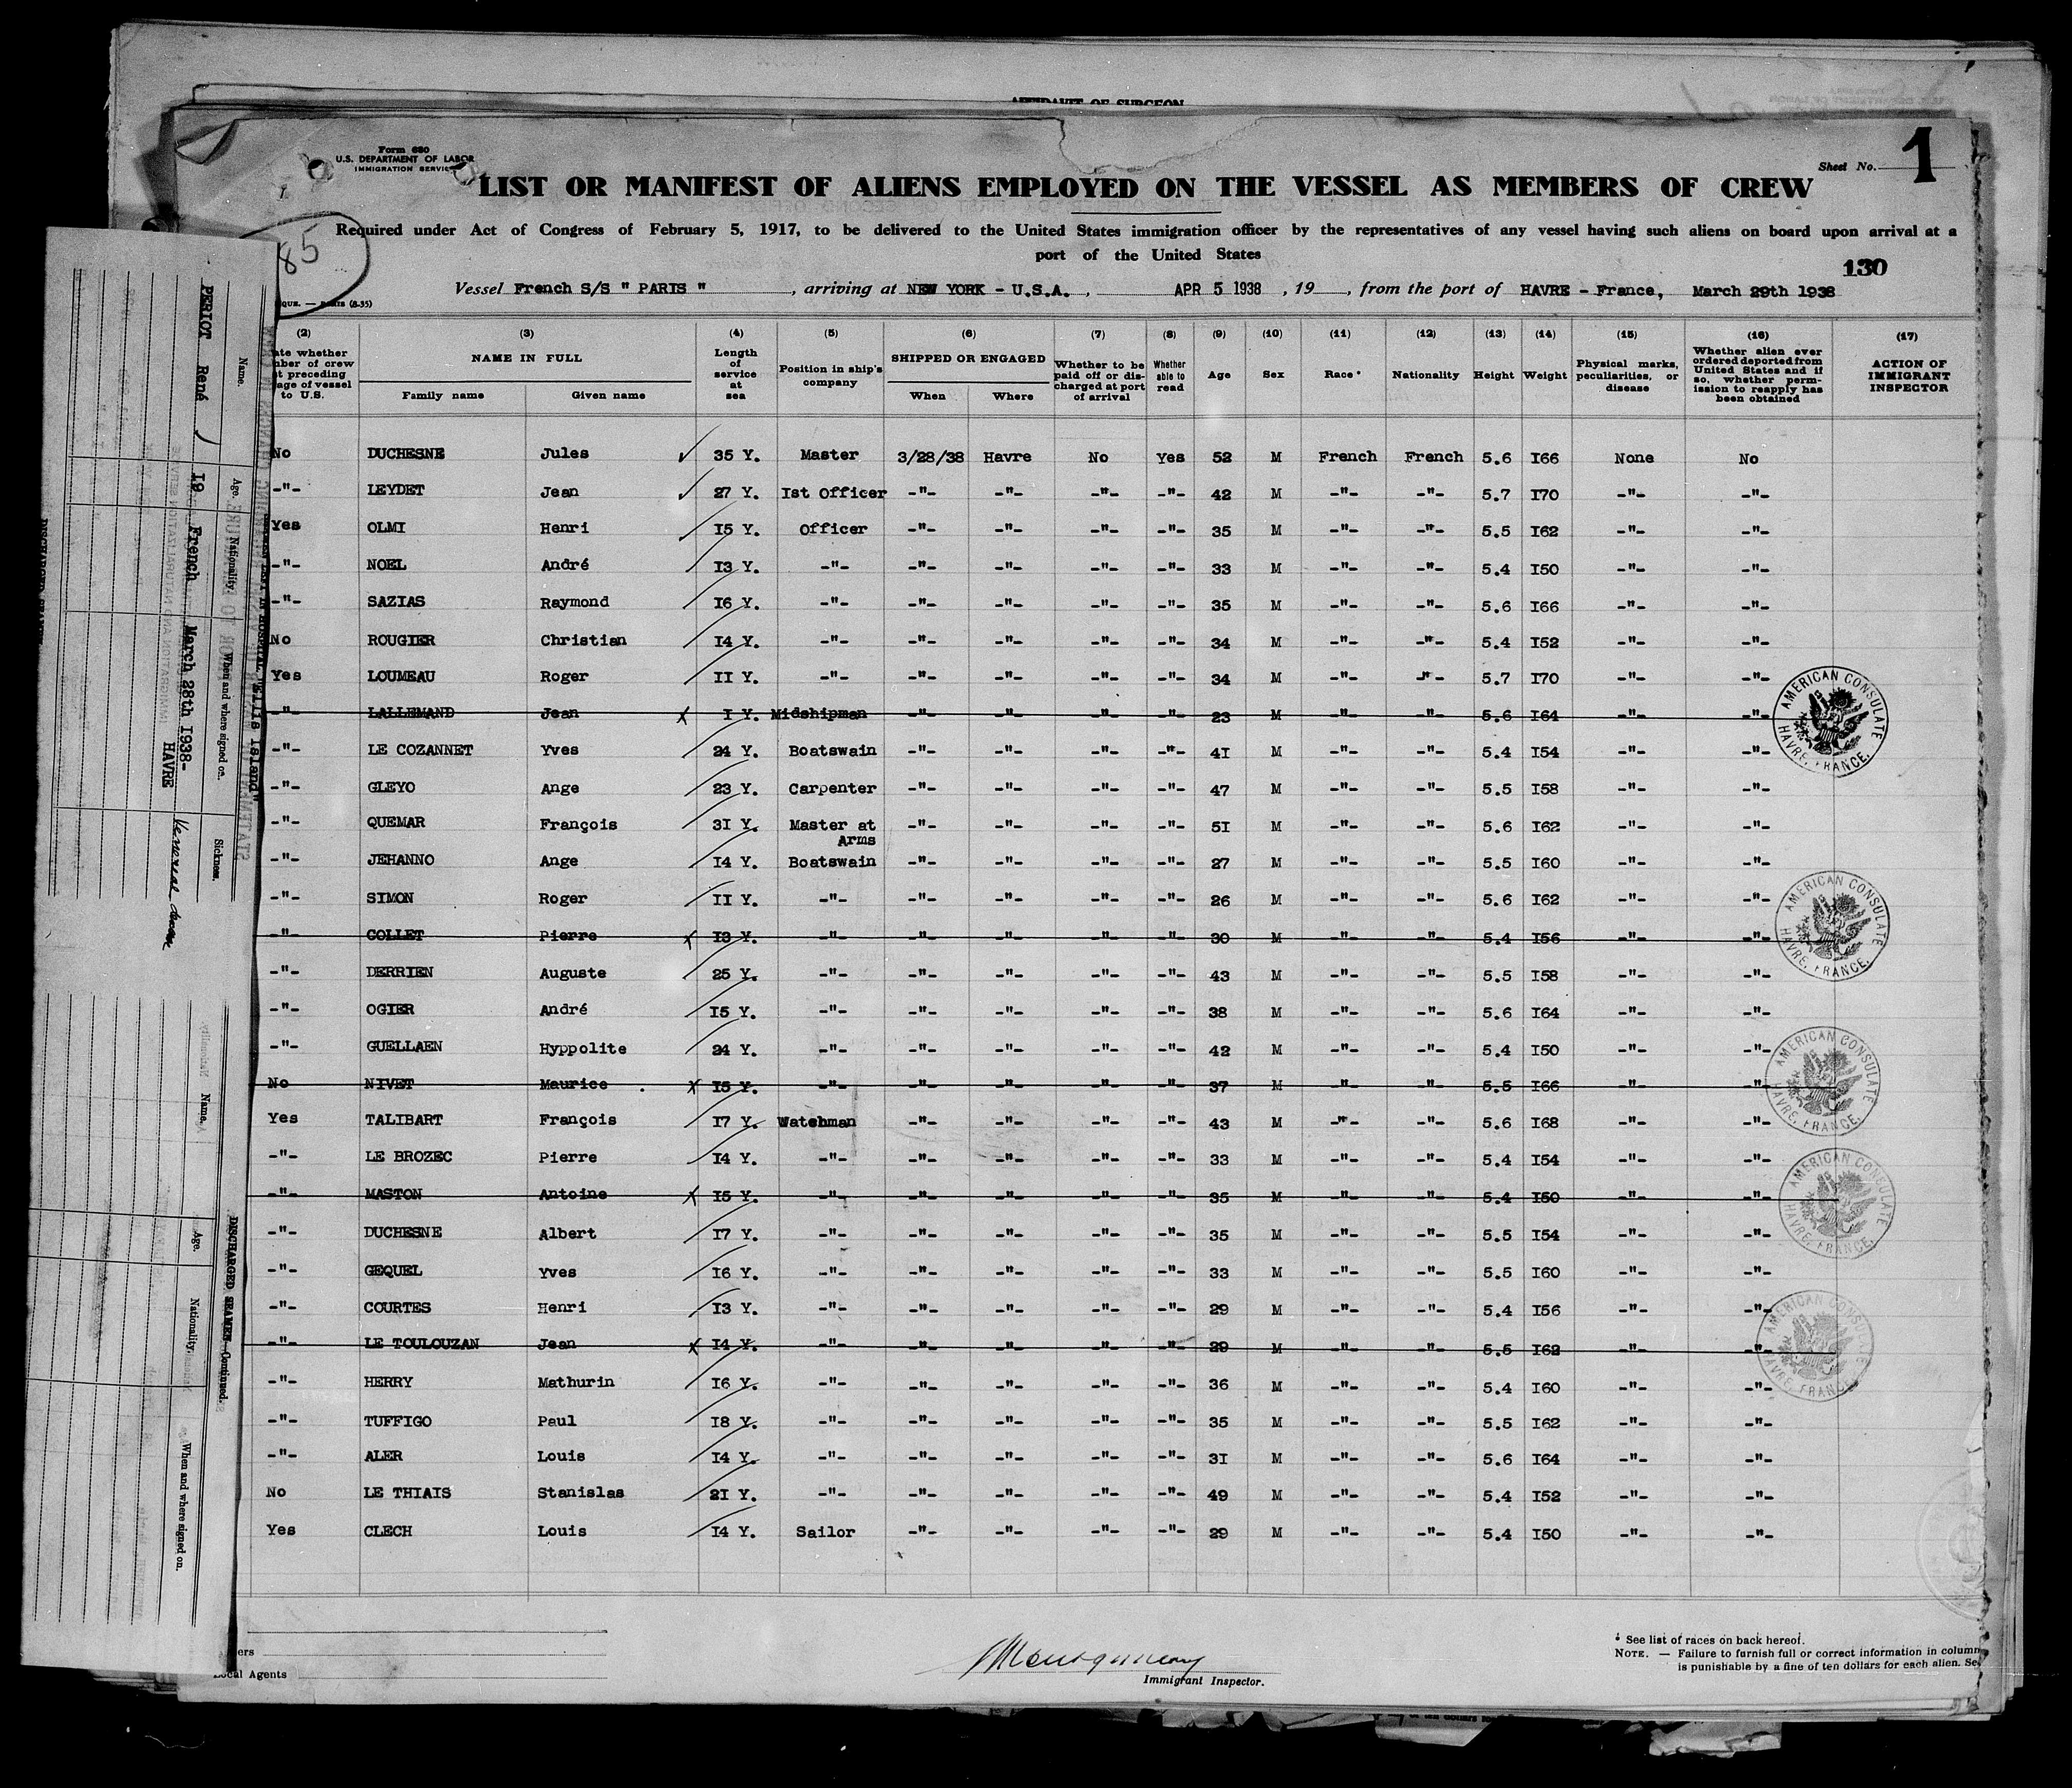 AFFIDAVIT OF SURGEON
Form 680
U.S. DEPARTMENT OF LABOR
IMMIGRATION SERVICE
Sheet No. 1
LIST OR MANIFEST OF ALIENS EMPLOYED ON THE VESSEL AS MEMBERS OF CREW
85
Required under Act of Congress of February 5, 1917, to be delivered to the United States immigration officer by the representatives of any vessel having such aliens on board upon arrival at a
port of the United States
130
Vessel French S/S " PARIS " , arriving at NEW YORK - U.S.A. , APR 5 1938 , 19 , from the port of HAVRE - France, March 29th 1938
(2) (3) (4) (5) (6) (7) (8) (9) (10) (11) (12) (13) (14) (15) (16) (17)
ate whether
mber of crew
t preceding
age of vessel
to U.S.
NAME IN FULL
Family name Given name
Length
of
service
at
sea
Position in ship's
company
SHIPPED OR ENGAGED
When Where
Whether to be
paid off or dis-
charged at port
of arrival
Whether
able to
read
Age
Sex
Race *
Nationality
Height
Weight
Physical marks,
peculiarities, or
disease
Whether alien ever
ordered deported from
United States and if
so, whether perm-
ission to reapply has
been obtained
ACTION OF
IMMIGRANT
INSPECTOR
No DUCHESNE Jules 35 Y. Master 3/28/38 Havre No Yes 52 M French French 5.6 I66 None No
-"- LEYDET Jean 27 Y. Ist Officer -"- -"- -"- -"- 42 M -"- -"- 5.7 I70 -"- -"-
Yes OLMI Henri I5 Y. Officer -"- -"- -"- -"- 35 M -"- -"- 5.5 I62 -"- -"-
-"- NOEL André I3 Y. -"- -"- -"- -"- -"- 33 M -"- -"- 5.4 I50 -"- -"-
-"- SAZIAS Raymond I6 Y. -"- -"- -"- -"- -"- 35 M -"- -"- 5.6 I66 -"- -"-
No ROUGIER Christian I4 Y. -"- -"- -"- -"- -"- 34 M -"- -"- 5.4 I52 -"- -"-
Yes LOUMEAU Roger II Y. -"- -"- -"- -"- -"- 34 M -"- -"- 5.7 I70 -"- -"-
-"- LALLEMAND Jean x I Y. Midshipman -"- -"- -"- -"- 23 M -"- -"- 5.6 I64 -"- -"-
-"- LE COZANNET Yves 24 Y. Boatswain -"- -"- -"- -"- 4I M -"- -"- 5.4 I54 -"- -"-
-"- GLEYO Ange 23 Y. Carpenter -"- -"- -"- -"- 47 M -"- -"- 5.5 I58 -"- -"-
-"- QUEMAR François 3I Y. Master at -"- -"- -"- -"- 5I M -"- -"- 5.6 I62 -"- -"-
Arms
-"- JEHANNO Ange I4 Y. Boatswain -"- -"- -"- -"- 27 M -"- -"- 5.5 I60 -"- -"-
-"- SIMON Roger II Y. -"- -"- -"- -"- -"- 26 M -"- -"- 5.6 I62 -"- -"-
-"- COLLET Pierre x I3 Y. -"- -"- -"- -"- -"- 30 M -"- -"- 5.4 I56 -"- -"-
-"- DERRIEN Auguste 25 Y. -"- -"- -"- -"- -"- 43 M -"- -"- 5.5 I58 -"- -"-
-"- OGIER André I5 Y. -"- -"- -"- -"- -"- 38 M -"- -"- 5.6 I64 -"- -"-
-"- GUELLAEN Hyppolite 24 Y. -"- -"- -"- -"- -"- 42 M -"- -"- 5.4 I50 -"- -"-
No NIVET Maurice x I5 Y. -"- -"- -"- -"- -"- 37 M -"- -"- 5.5 I66 -"- -"-
Yes TALIBART François I7 Y. Watchman -"- -"- -"- -"- 43 M -"- -"- 5.6 I68 -"- -"-
-"- LE BROZEC Pierre I4 Y. -"- -"- -"- -"- -"- 33 M -"- -"- 5.4 I54 -"- -"-
-"- MASTON Antoine x I5 Y. -"- -"- -"- -"- -"- 35 M -"- -"- 5.4 I50 -"- -"-
-"- DUCHESNE Albert I7 Y. -"- -"- -"- -"- -"- 35 M -"- -"- 5.5 I54 -"- -"-
-"- GEQUEL Yves I6 Y. -"- -"- -"- -"- -"- 33 M -"- -"- 5.5 I60 -"- -"-
-"- COURTES Henri I3 Y. -"- -"- -"- -"- -"- 29 M -"- -"- 5.4 I56 -"- -"-
-"- LE TOULOUZAN Jean x I4 Y. -"- -"- -"- -"- -"- 29 M -"- -"- 5.5 I62 -"- -"-
-"- HERRY Mathurin I6 Y. -"- -"- -"- -"- -"- 36 M -"- -"- 5.4 I60 -"- -"-
-"- TUFFIGO Paul I8 Y. -"- -"- -"- -"- -"- 35 M -"- -"- 5.5 I62 -"- -"-
-"- ALER Louis I4 Y. -"- -"- -"- -"- -"- 3I M -"- -"- 5.6 I64 -"- -"-
No LE THIAIS Stanislas 2I Y. -"- -"- -"- -"- -"- 49 M -"- -"- 5.4 I52 -"- -"-
Yes CLECH Louis I4 Y. Sailor -"- -"- -"- -"- 29 M -"- -"- 5.4 I50 -"- -"-
AMERICAN CONSULATE HAVRE, FRANCE.
AMERICAN CONSULATE HAVRE, FRANCE.
AMERICAN CONSULATE HAVRE, FRANCE.
AMERICAN CONSULATE HAVRE, FRANCE.
AMERICAN CONSULATE HAVRE, FRANCE.
ers
Local Agents
Montgomery
Immigrant Inspector.
* See list of races on back hereof.
NOTE. — Failure to furnish full or correct information in column
is punishable by a fine of ten dollars for each alien. Se
"Ellis Island"
Name. Age. Nationality. When and where signed on. Sickness.
PERIOT René I9 French March 28th I938- Venereal
HAVRE
DISCHARGED SEAMEN—Continued.
Name. Age. Nationality. When and where signed on.